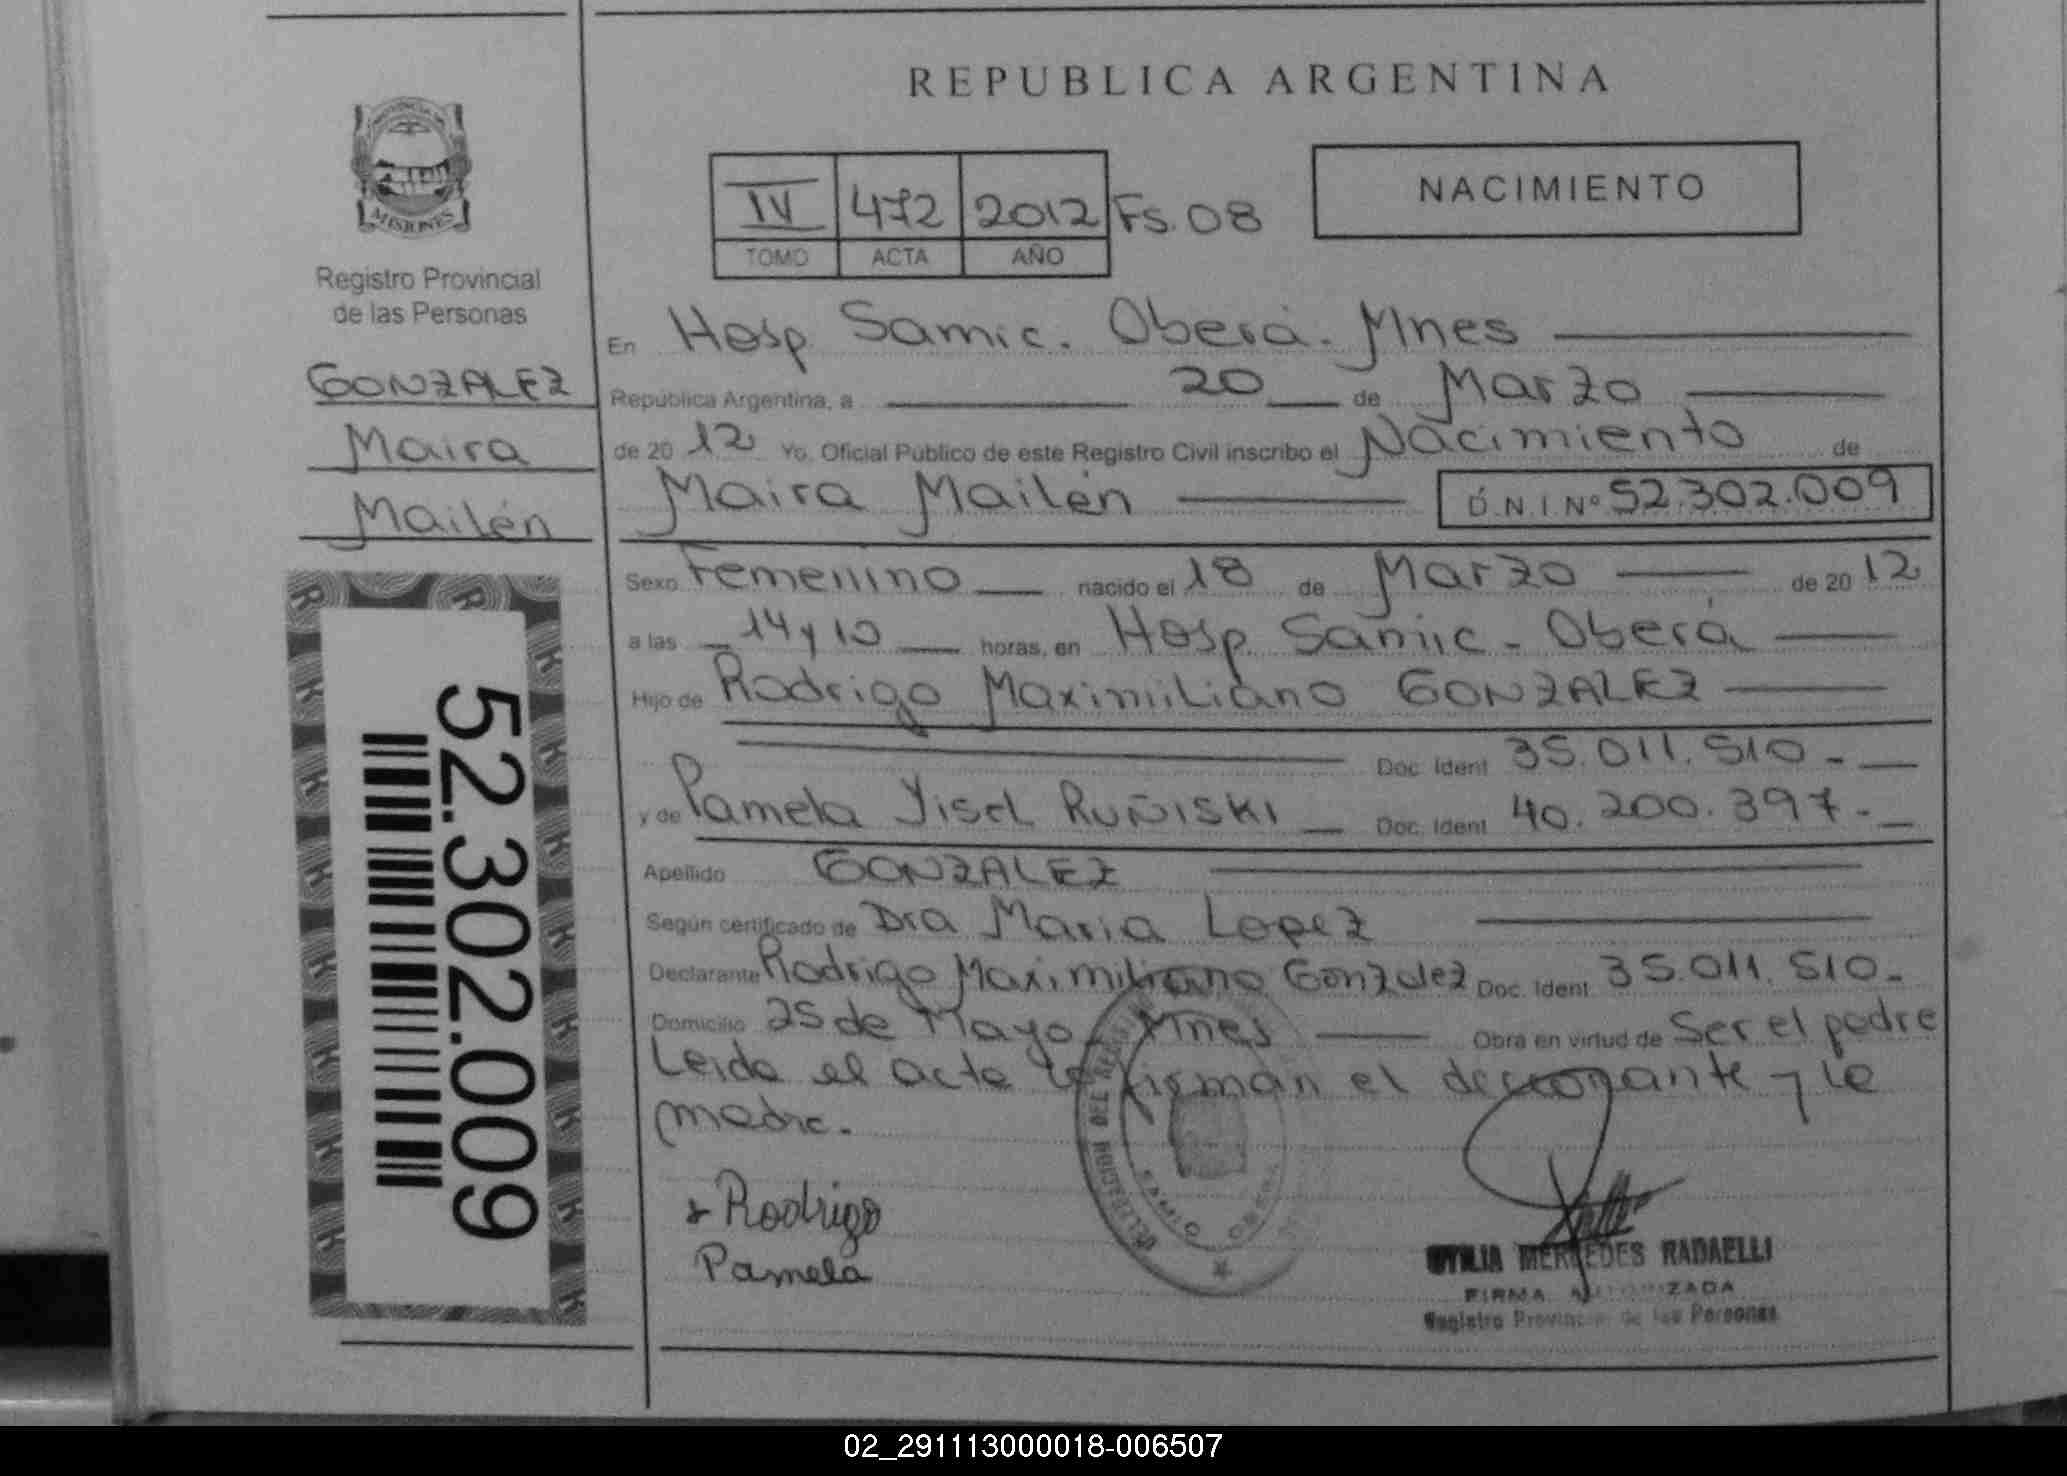 REPUBLICA ARGENTINA
MISIONES
Registro Provincial
de las Personas
GONZALEZ
Maira
Mailén
52.302.009
IV 472 2012 Fs. 08
TOMO ACTA AÑO
NACIMIENTO
En Hosp. Samic. Oberá. Mnes
República Argentina, a 20 de Marzo
de 2012 Yo, Oficial Público de este Registro Civil inscribo el Nacimiento de
Maira Mailén D.N.I. Nº 52.302.009
Sexo Femenino nacido el 18 de Marzo de 2012
a las 14 y 10 horas, en Hosp. Samic - Oberá
Hijo de Rodrigo Maximiliano GONZALEZ
Doc. Ident 35.011.510.-
y de Pamela Yisel RUÑISKI Doc. Ident 40.200.397.-
Apellido GONZALEZ
Según certificado de Dra Maria Lopez
Declarante Rodrigo Maximiliano Gonzalez Doc. Ident. 35.011.510.-
Domicilio 25 de Mayo Mnes Obra en virtud de Ser el padre
Leida el acta la firman el declarante y la
madre.
Rodrigo
Pamela
DEL REGISTRO
SAMIC OBERA
MERCEDES RADAELLI
FIRMA AUTORIZADA
Registro Provincial de las Personas
02_291113000018-006507